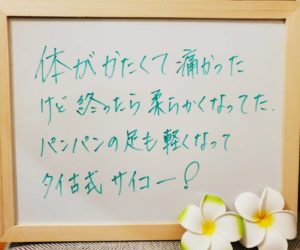 体がかたくて痛かった
けど終ったら柔らかくなってた.
パンパンの足も軽くなって
タイ古式サイコー!